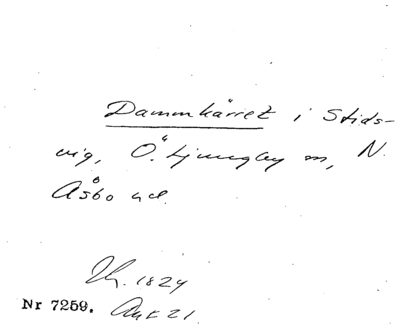 Dammkärret i Stids-
vig, Ö. Ljungby sn, N.
Åsbo hd.
1829
Nr 7259. Akt 21